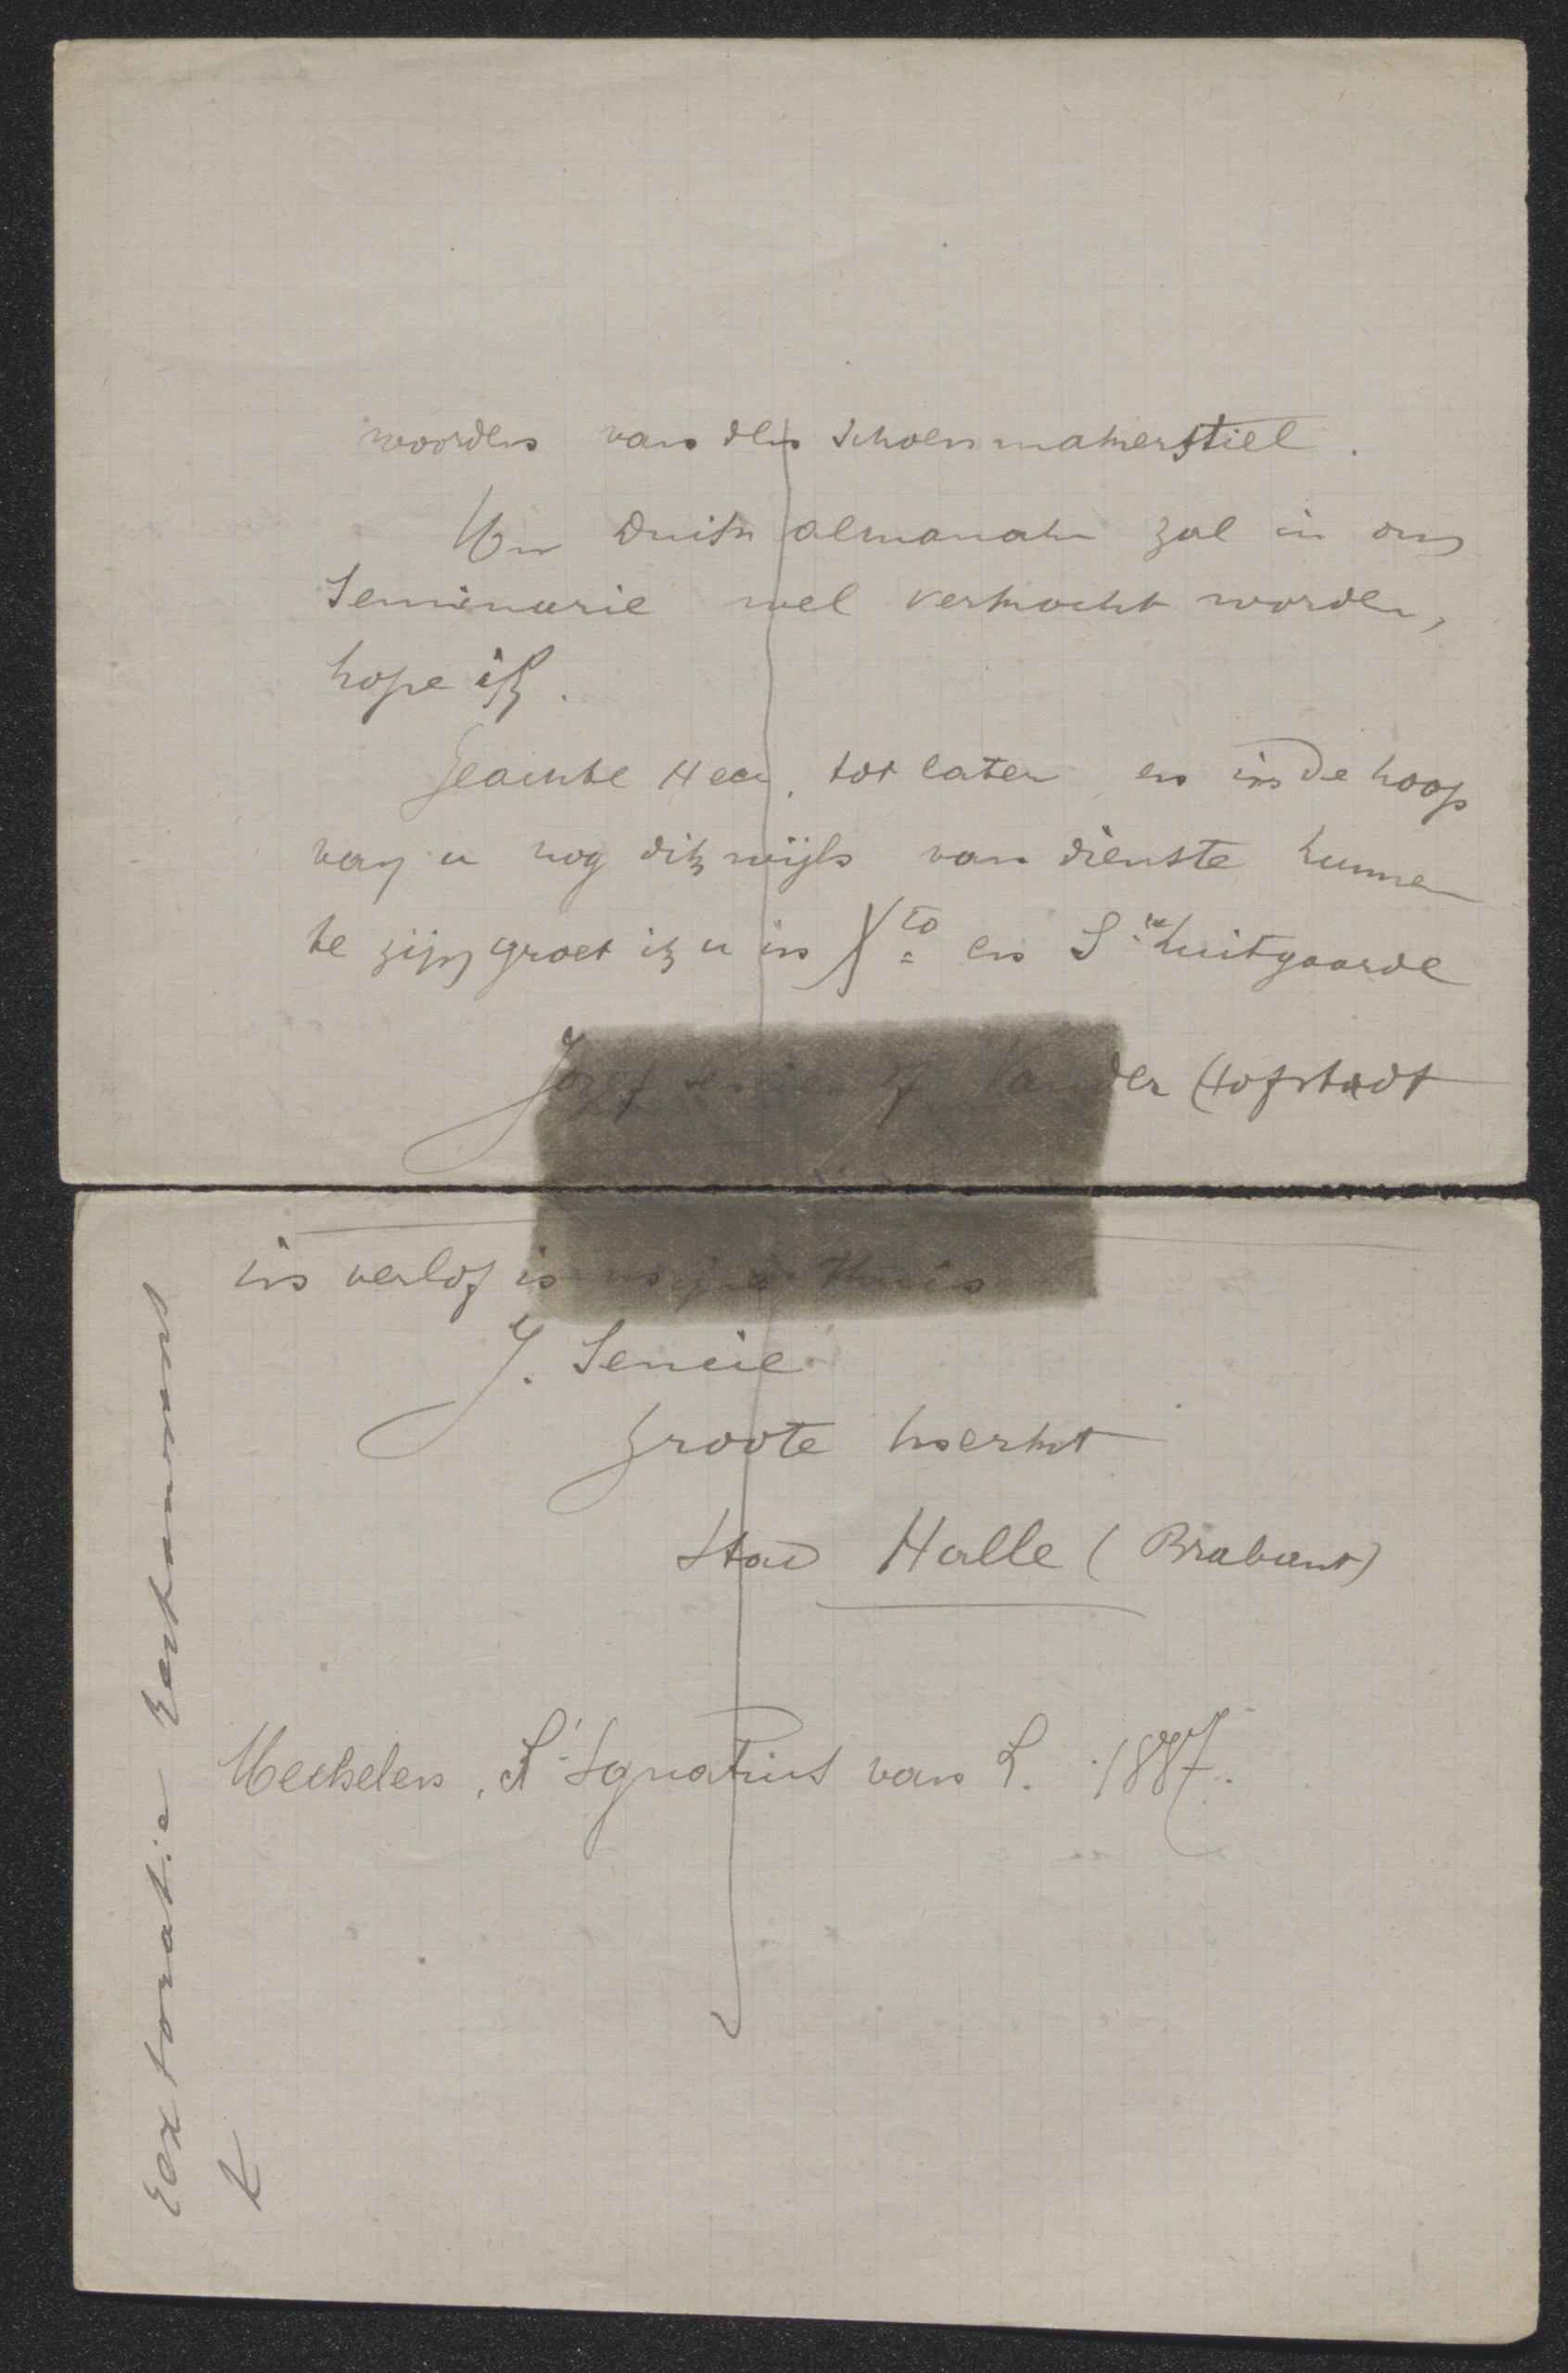 woorden van den schoenmakerstiel.
Uw Duik almanak zal in ons
Seminarie wel verkocht worden,
hope ik.
Geachte Heer, tot later en in de hoop
van u nog dikwijls van dienste kunnen
te zijn groet ik u in Xto en Ste Luitgaarde
Jozef Sencie of Vander Hofstadt
in verlof is mijn thuis
J. Sencie
Groote Merkt
Stad Halle (Brabant)
Mechelen, St Ignatius van L. 1887.